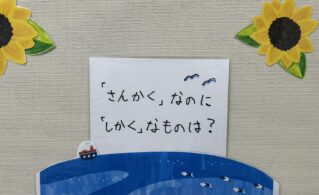 「さんかく」なのに
「しかく」なものは？